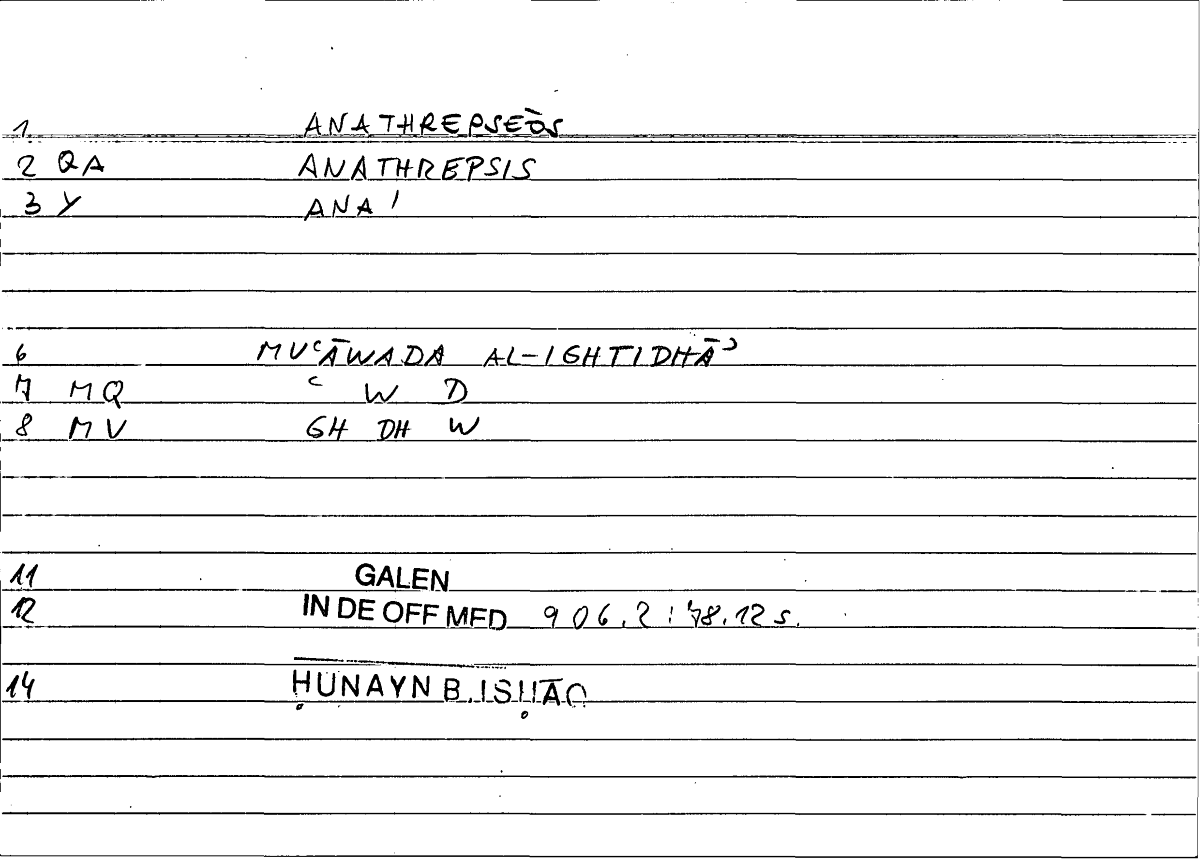 1. ANATHREPSEŌS
2 QA ANATHREPSIS
3 Y ANA'
6 MUʿĀWADA AL-IGHTIDHĀʾ
7 MQ ʿ W D
8 MV GH DH W
11 GALEN
12 IN DE OFF MED 906.2:78.12 s.
14 ḤUNAYN B. ISḤĀQ